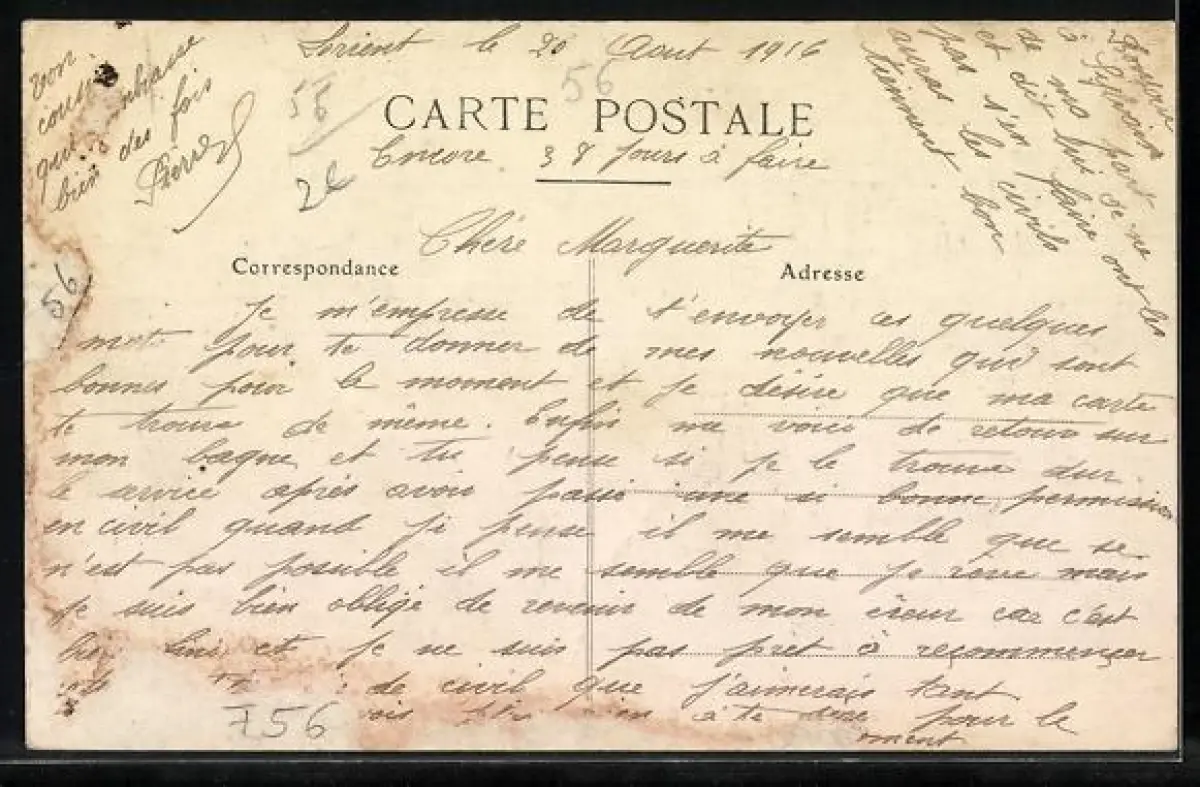 Lorient le 20 Aout 1916
CARTE POSTALE
Encore 38 jours à faire
Chère Marguerite
Correspondance
Adresse
Je m'empresse de t'envoyer ces quelques
mots pour te donner de mes nouvelles qui sont
bonnes pour le moment et je désire que ma carte
te trouve de même. Enfin me voici de retour sur
mon bagne et tu pense si je le trouve dur
le service après avoir passé une si bonne permission
en civil quand j'i pense il me semble que se
n'est pas possible il me semble que je reve mais
je suis bien obligé de revenir de mon éreur car c'est
fini et je ne suis pas prêt à recommencer
de civil que j'aimerais tant
à te dire pour le
moment
ton
cousin
qui t'embrasse
bien des fois
Pierre
de ma part
et dit lui de ne
pas s'en faire ont les
auras les civils
tiennent bon
56
56
756